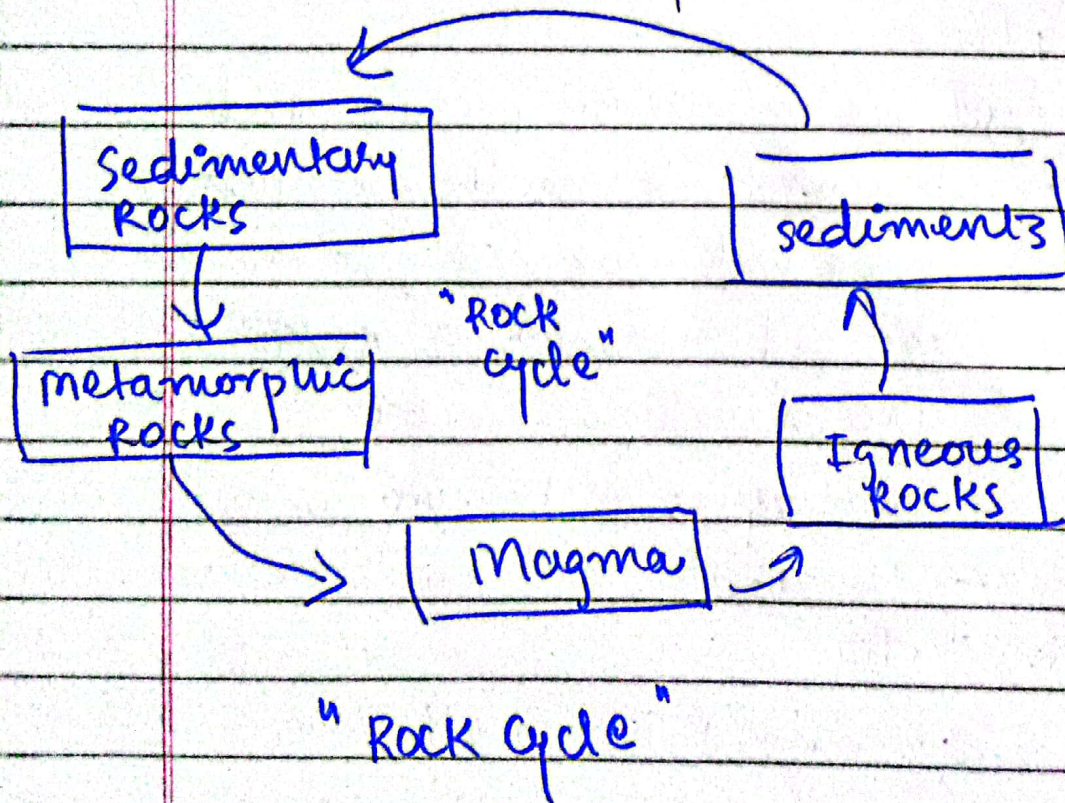 Sedimentary
Rocks
sediments
"Rock
Cycle"
Metamorphic
Rocks
Igneous
Rocks
Magma
"Rock Cycle"